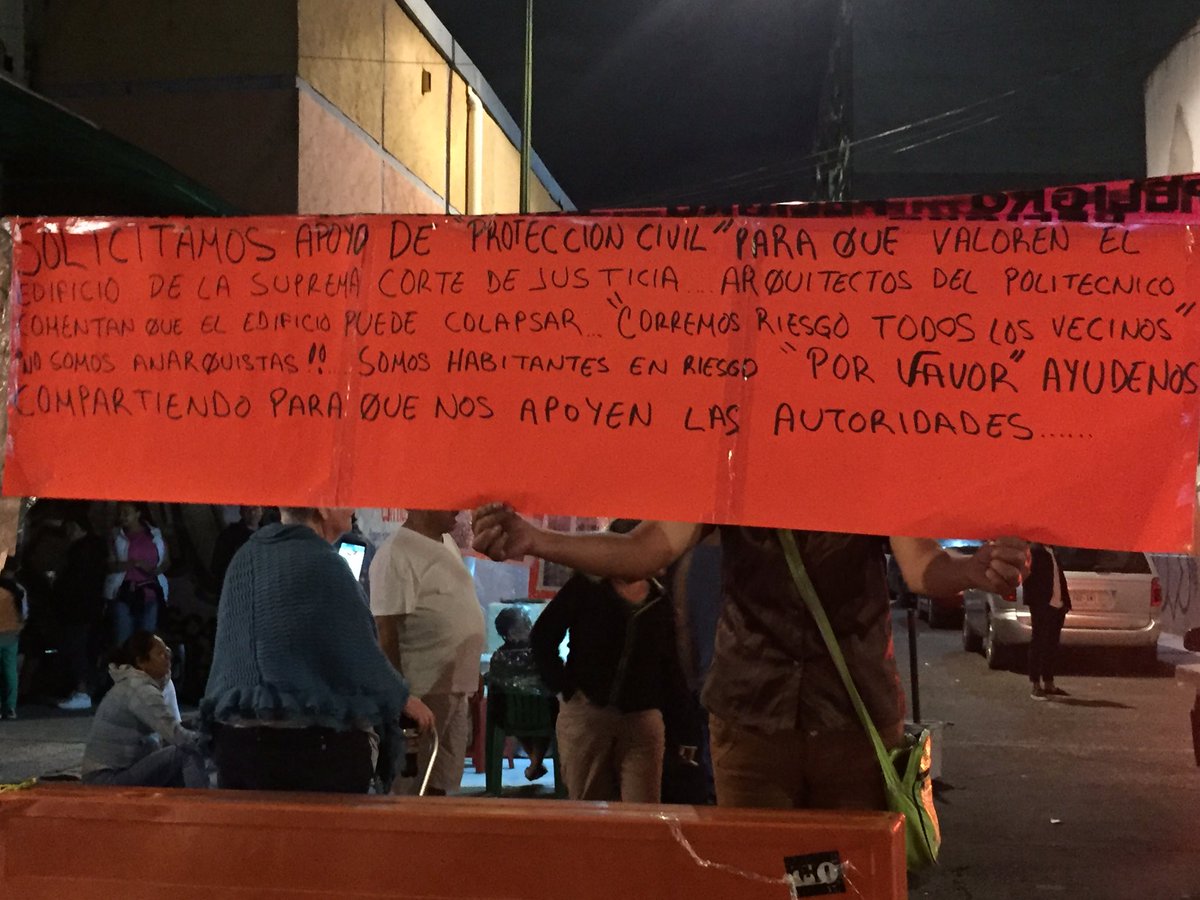 SOLICITAMOS APOYO DE "PROTECCION CIVIL" PARA QUE VALOREN EL
EDIFICIO DE LA SUPREMA CORTE DE JUSTICIA.... ARQUITECTOS DEL POLITECNICO
COMENTAN QUE EL EDIFICIO PUEDE COLAPSAR... "CORREMOS RIESGO TODOS LOS VECINOS"
NO SOMOS ANARQUISTAS!! SOMOS HABITANTES EN RIESGO "POR FAVOR" AYUDENOS
COMPARTIENDO PARA QUE NOS APOYEN LAS AUTORIDADES......